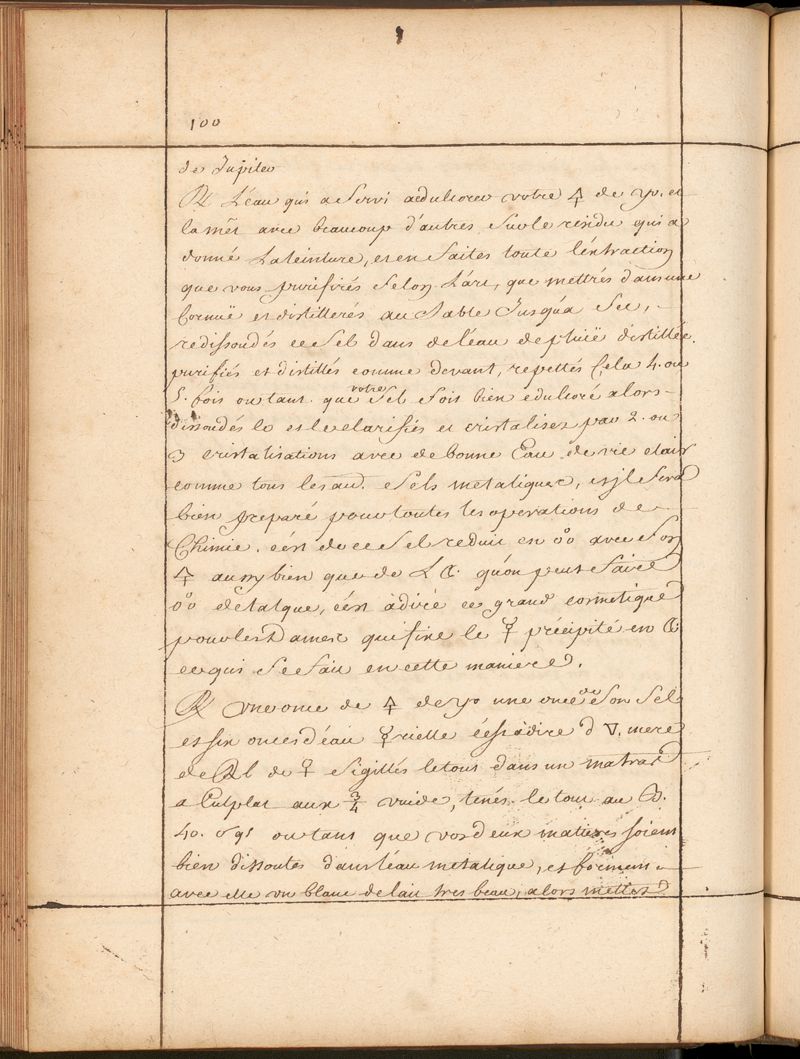 100
de Jupiter
℞ L'eau qui a servi a edulcorer votre 🜍 de ♃. et
la mét avec beaucoup d'autres sur le residu qui a
donné La teinture, et en faites toute l'éxtraction
que vous purifirés selon L'art, que mettrés dans une
Cornuë et distillerés au Sable Jusqu'a Sec,
redissoudés ce Sel dans de l'eau de pluië distillée.
purifiés et distillés comme devant, repettés Cela 4. ou
5. fois ou tant que votre Sel soit bien edulcoré alors
dissoudés le et le clarifiés et cristalisez par 2. ou
3 cristalisations avec de bonne Eau de vie clair
comme tous les au. Sels metaliques, et jl sera
bien preparé pour toutes les operations de
Chimie. c'ést de ce Sel reduit en o°o avec son
🜍 aussy bien que de L ☾. qu'on peut faire
o°o de talque, c'ést à dire ce grand cosmetique
pour les Dames qui fixe le ☿ précipité en ☾
ce qui Se fait en cette maniere.
℞ Une once de 🜍 de ♃ une once de Son Sel
et six onces d'eau ☿rielle c'ést à dire d ▽. mere
de de ☿ Sigillés le tout dans un matras
a Cul plat aux 3/4 vuide, tenés le tout au B.
40. ou tant que vos deux matieres soient
bien dissoutes dans l'eau metalique, et forment
avec elle un blanc de lait tres beau, alors mettez